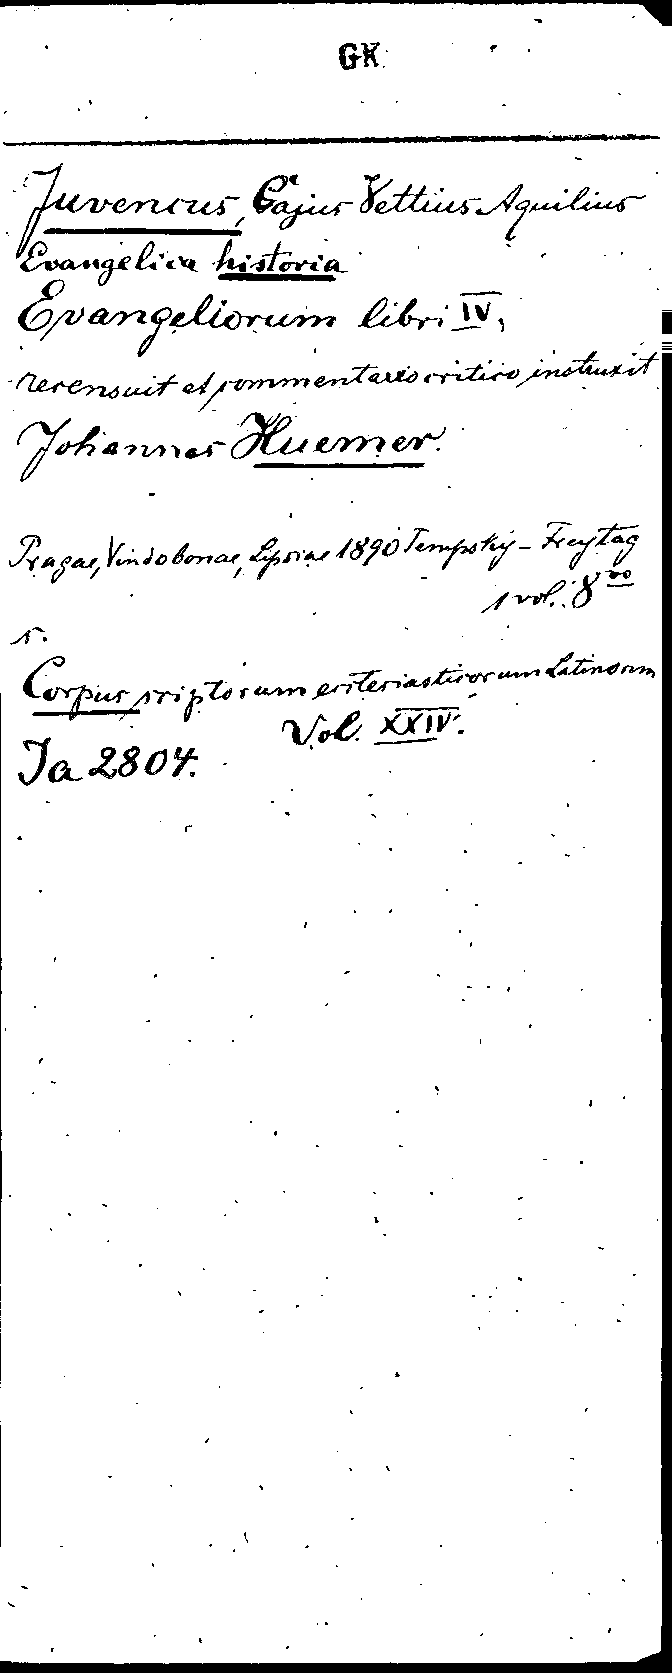 GK
Juvencus, Cajus Vettius Aquilius
Evangelica historia
Evangeliorum libri IV,
recensuit et commentario critico instruxit
Johannes Huemer.
Pragae, Vindobonae, Lipsiae 1890 Tempsky - Freytag
1 vol. 8vo
s.
Corpus scriptorum ecclesiasticorum Latinorum
Vol. XXIV.
Ja 2804.